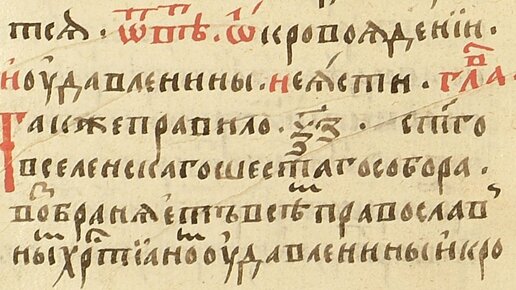 тсѧ. ѿпѣⷮ. ѡ҆ кровоꙗденїи.
и оудавленины. не ꙗсти. глаⷡ
Также правило. ѯ҃з. ст҃го
вселенскаго шестаго собора.
воⷥбранѧетъ всѣⷨ православ
ныⷨ хрⷭтїаноⷨ оудавленины и кро